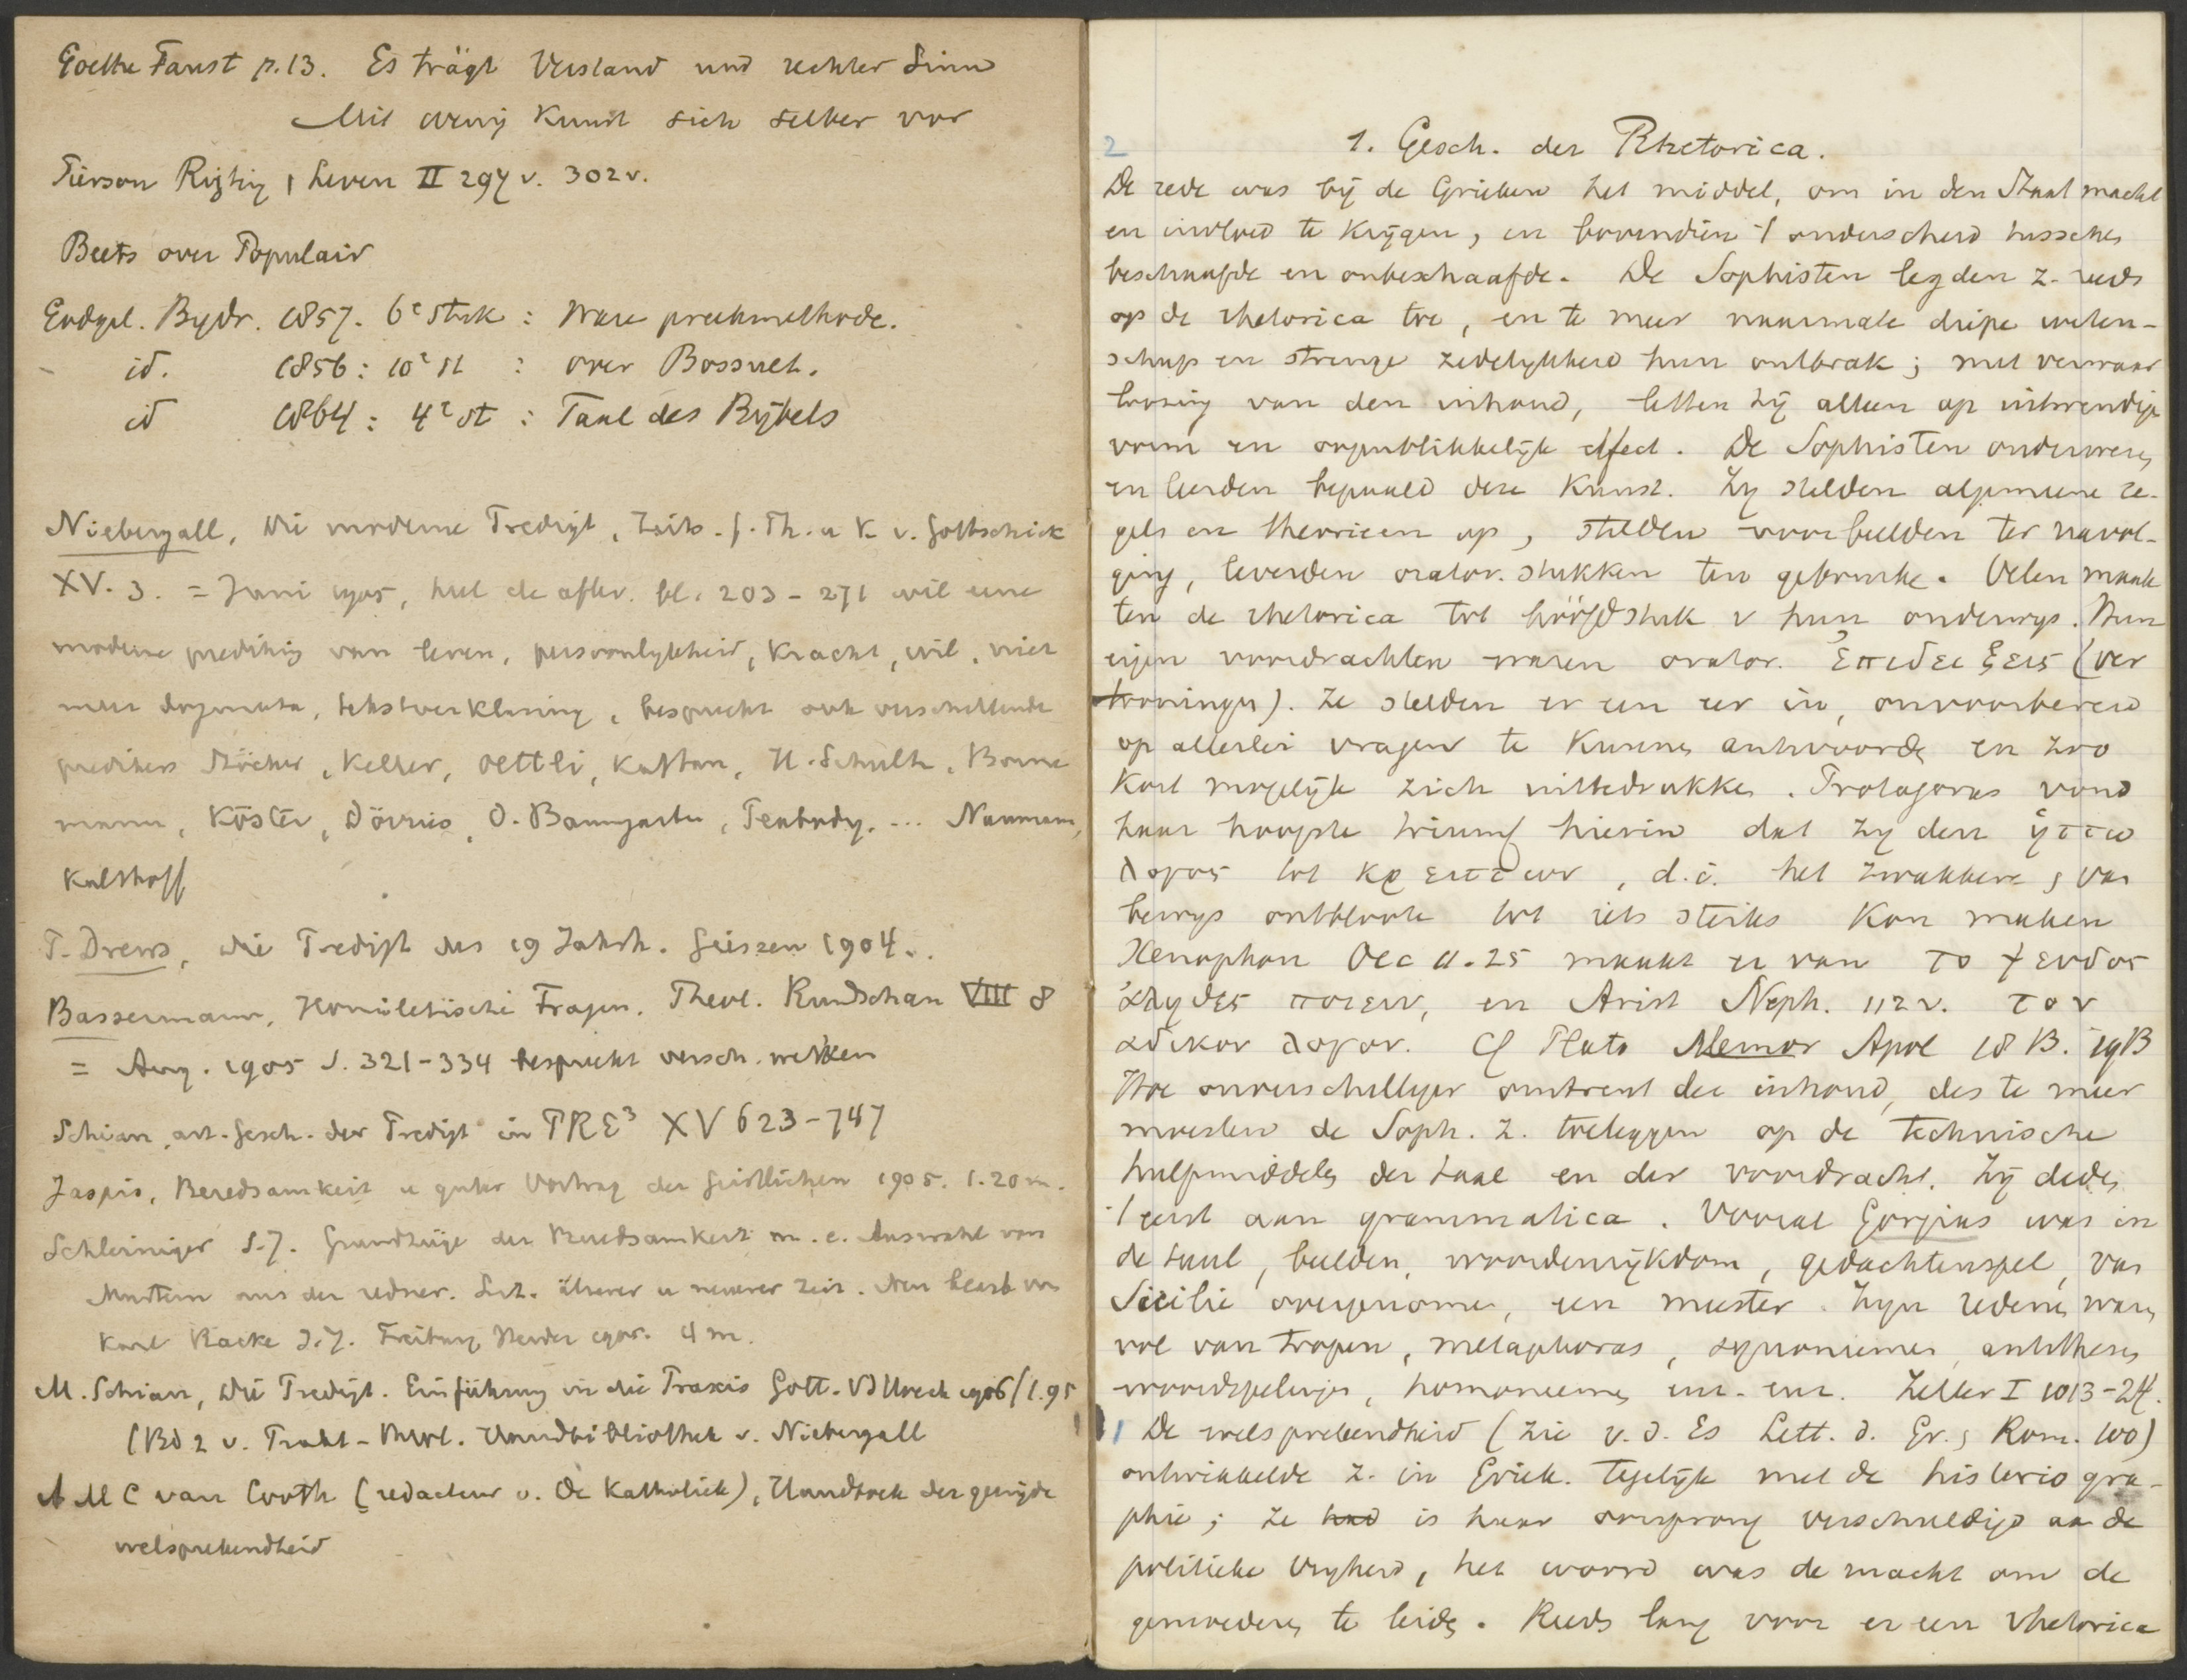 Goethe Faust p.13. Es trägt Verstand und rechter Sinn
Mit wenig Kunst sich selber vor
Pierson Rigting & Leven II 297 v. 302 v.
Beets over Populair
Godgel. Bydr. 1857. 6e stuk : Ware preekmethode.
id. 1856 : 10e st : over Bossuet.
id 1864 : 4e st : Taal des Bijbels
Niebergall, Die moderne Predigt, Zeits. f. Th. u K. v. Gottschick
XV. 3. = Juni 1905, heel de aflev. bl. 203 - 271 wil eene
moderne prediking van leven, persoonlykheid, kracht, wil, niet
meer dogmata, tekstverklaring, bespreekt ook verschillende
predikers Stöcker, Keller, Oettli, Kaftan, H. Schultz, Borne
mann, Köster, Dörries, O. Baumgarten, Peabody. ... Naumann,
Kalthoff
P. Drews, Die Predigt des 19 Jahrh. Giszen 1904..
Bassermann, Homiletische Fragen. Theol. Rundschau VIII 8
= Aug. 1905 S. 321-334 bespreekt versch. werken
Schian, art. Gesch. der Predigt in PRE3 XV 623-747
Jaspis, Beredsamkeit u guter Vortrag der Geistlichen 1905. 1.20 m.
Schleiniger S.J. Grundzüge der Beredsamkeit m. e. Auswahl von
Mustern aus der redner. Lit. älterer u neuerer Zeit. Neu bearb von
Karl Racke S.J. Freiburg Herder 1905. 4 m.
M. Schian, Die Predigt. Einführung in die Praxis Gött. V&R 1906 / 1.95
(Bd 2 v. Prakt-theol. Handbibliothek v. Niebergall
A M C van Cooth (redacteur v. De Katholiek), Handboek der gewijde
welsprekendheid
2
1. Gesch. der Rhetorica.
De rede was bij de Grieken het middel, om in den Staat macht
en invloed te krijgen, en bovendien 't onderscheid tusschen
beschaafde en onbeschaafde. De Sophisten legden z. reeds
op de rhetorica toe, en te meer naarmate diepe weten-
schap en strenge zedelykheid hun ontbrak ; met verwaar
loozing van den inhoud, letten zij alleen op uitwendige
vorm en oogenblikkelijk effect. De Sophisten onderwezen
en leerden bepaald deze Kunst. Zy stelden algemeene re-
gels en theorieen op, stelden voorbeelden ter navol-
ging, leverden orator. stukken ten gebruike. Velen maak
ten de rhetorica tot hoofdstuk v hun onderwys. Hun
eigen voordrachten waren orator. ἐπιδειξεις (ver
tooningen). Ze stelden er een eer in, onvoorbereid
op allerlei vragen te kunnen antwoorden en zoo
kort mogelijk zich uittedrukken. Protagoras vond
haar hoogste triumf hierin dat zy den ἡττω
λογος tot κρειττων, d.i. het zwakkere, van
bewys ontbloote tot iets sterks kon maken
Xenophon Oec 11.25 maakt er van το ψευδος
ἀληθες ποιειν, en Arist Neph. 112 v. τον
αδικον λογον. Cf Plato Apol 18 B. 19B
Hoe onverschilliger omtrent den inhoud, des te meer
moesten de Soph. z. toeleggen op de technische
hulpmiddelen der taal en der voordracht. Zij deden
't eerst aan grammatica. Vooral Gorgias was in
de taal, beelden, woordenrijkdom, gedachtenspel, van
Sicilie overgenomen, een meester. Zijn redenen waren
vol van tropen, metaphoras, synoniemen, antithesen
woordspelingen, homoniemen enz. enz. Zeller I 1013-24.
1 De welsprekendheid (zie v. d. Es Lett. d. Gr. & Rom. 100)
ontwikkelde z. in Griek. tegelijk met de historiogra-
phie ; ze had is haar oorsprong verschuldigd aan de
politieke vryheid, het woord was de macht om de
gemoederen te leiden. Reeds lang voor er een rhetorica